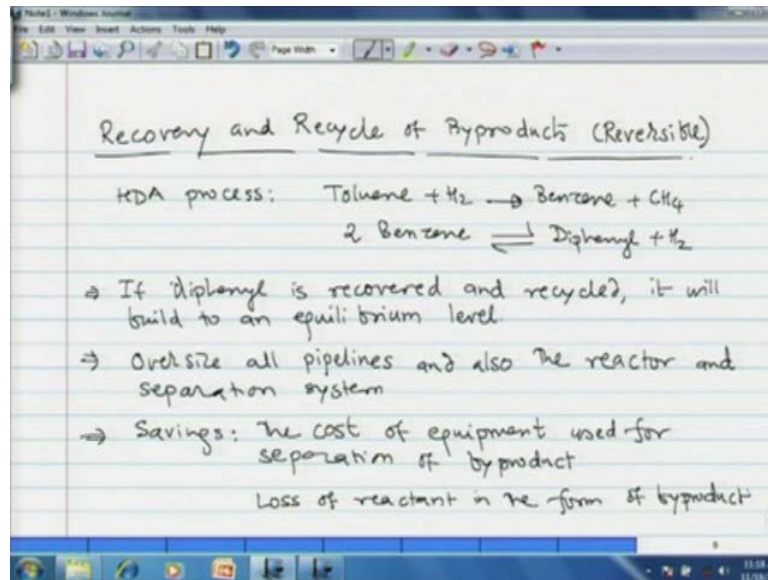 Note1 - Windows Journal
File Edit View Insert Actions Tools Help
Page Width
Recovery and Recycle of Byproducts (Reversible)
HDA process: Toluene + H2 → Benzene + CH4
2 Benzene ⇌ Diphenyl + H2
⇒ If diphenyl is recovered and recycled, it will
build to an equilibrium level.
⇒ Oversize all pipelines and also the reactor and
separation system
⇒ Savings: The cost of equipment used for
separation of byproduct
Loss of reactant in the form of byproduct
9